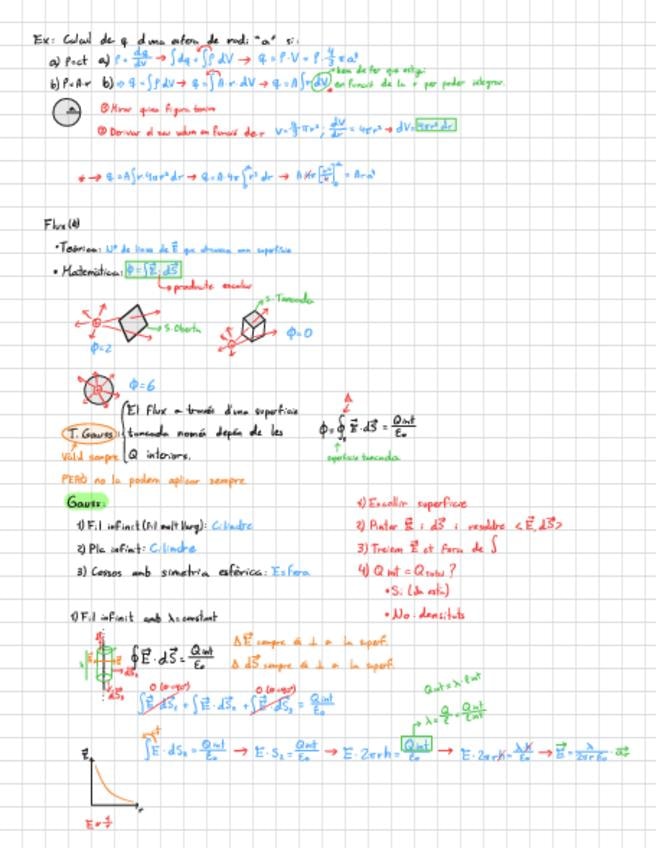 Ex: Calcul de q d'una esfera de radi "a" si:
a) ρ=ct a) ρ = dq/dV → ∫dq = ∫ρ dV → q = ρ·V = ρ·4/3 π a³
b) ρ=A·r b) ⇒ q = ∫ρ dV → q = ∫A·r dV → q = A∫r dV
hem de fer que estigui en funció de la r per poder integrar.
① Mirar quina figura tenim
② Derivar el seu volum en funció de r V = 4/3 πr³; dV/dr = 4πr² → dV = 4πr² dr
* → q = A∫r 4πr² dr → q = A 4π ∫r³ dr → A 4π [r⁴/4] = Aπa⁴
Flux (ϕ)
• Teòrica: Nº de línies de E que atravessa una superfície
• Matemàtica: ϕ = ∫E·dS
producte escalar
S. Oberta
ϕ=2
S. Tancada
ϕ=0
ϕ=6
T. Gauss:
El Flux a través d'una superfície
tancada només depèn de les
Q interiors.
Vàlid sempre
ϕ = ∮E·dS = Qint/ε₀
superfície tancada
PERÒ no la podem aplicar sempre
Gauss:
1) Fil infinit (fil molt llarg): Cilindre
2) Pla infinit: Cilindre
3) Cossos amb simetria esfèrica: Esfera
1) Escollir superfície
2) Pintar E i dS i resoldre <E, dS>
3) Treiem E at fora de ∫
4) Q int = Q total?
• Si (ja està)
• No: densitats
1) Fil infinit amb λ=constant
∮E·dS = Qint/ε₀
Δ E sempre és ⊥ a la superf.
Δ dS sempre és ⊥ a la superf.
∫E dS₁ + ∫E·dS₂ + ∫E dS₃ = Qint/ε₀
Qint = λ·Lint
λ = Q/L = Qint/Lint
∫E·dS₂ = Qint/ε₀ → E·S₂ = Qint/ε₀ → E·2πrh = Qint/ε₀ → E·2πrh = λh/ε₀ → E = λ/2πrε₀ · ar
E
r